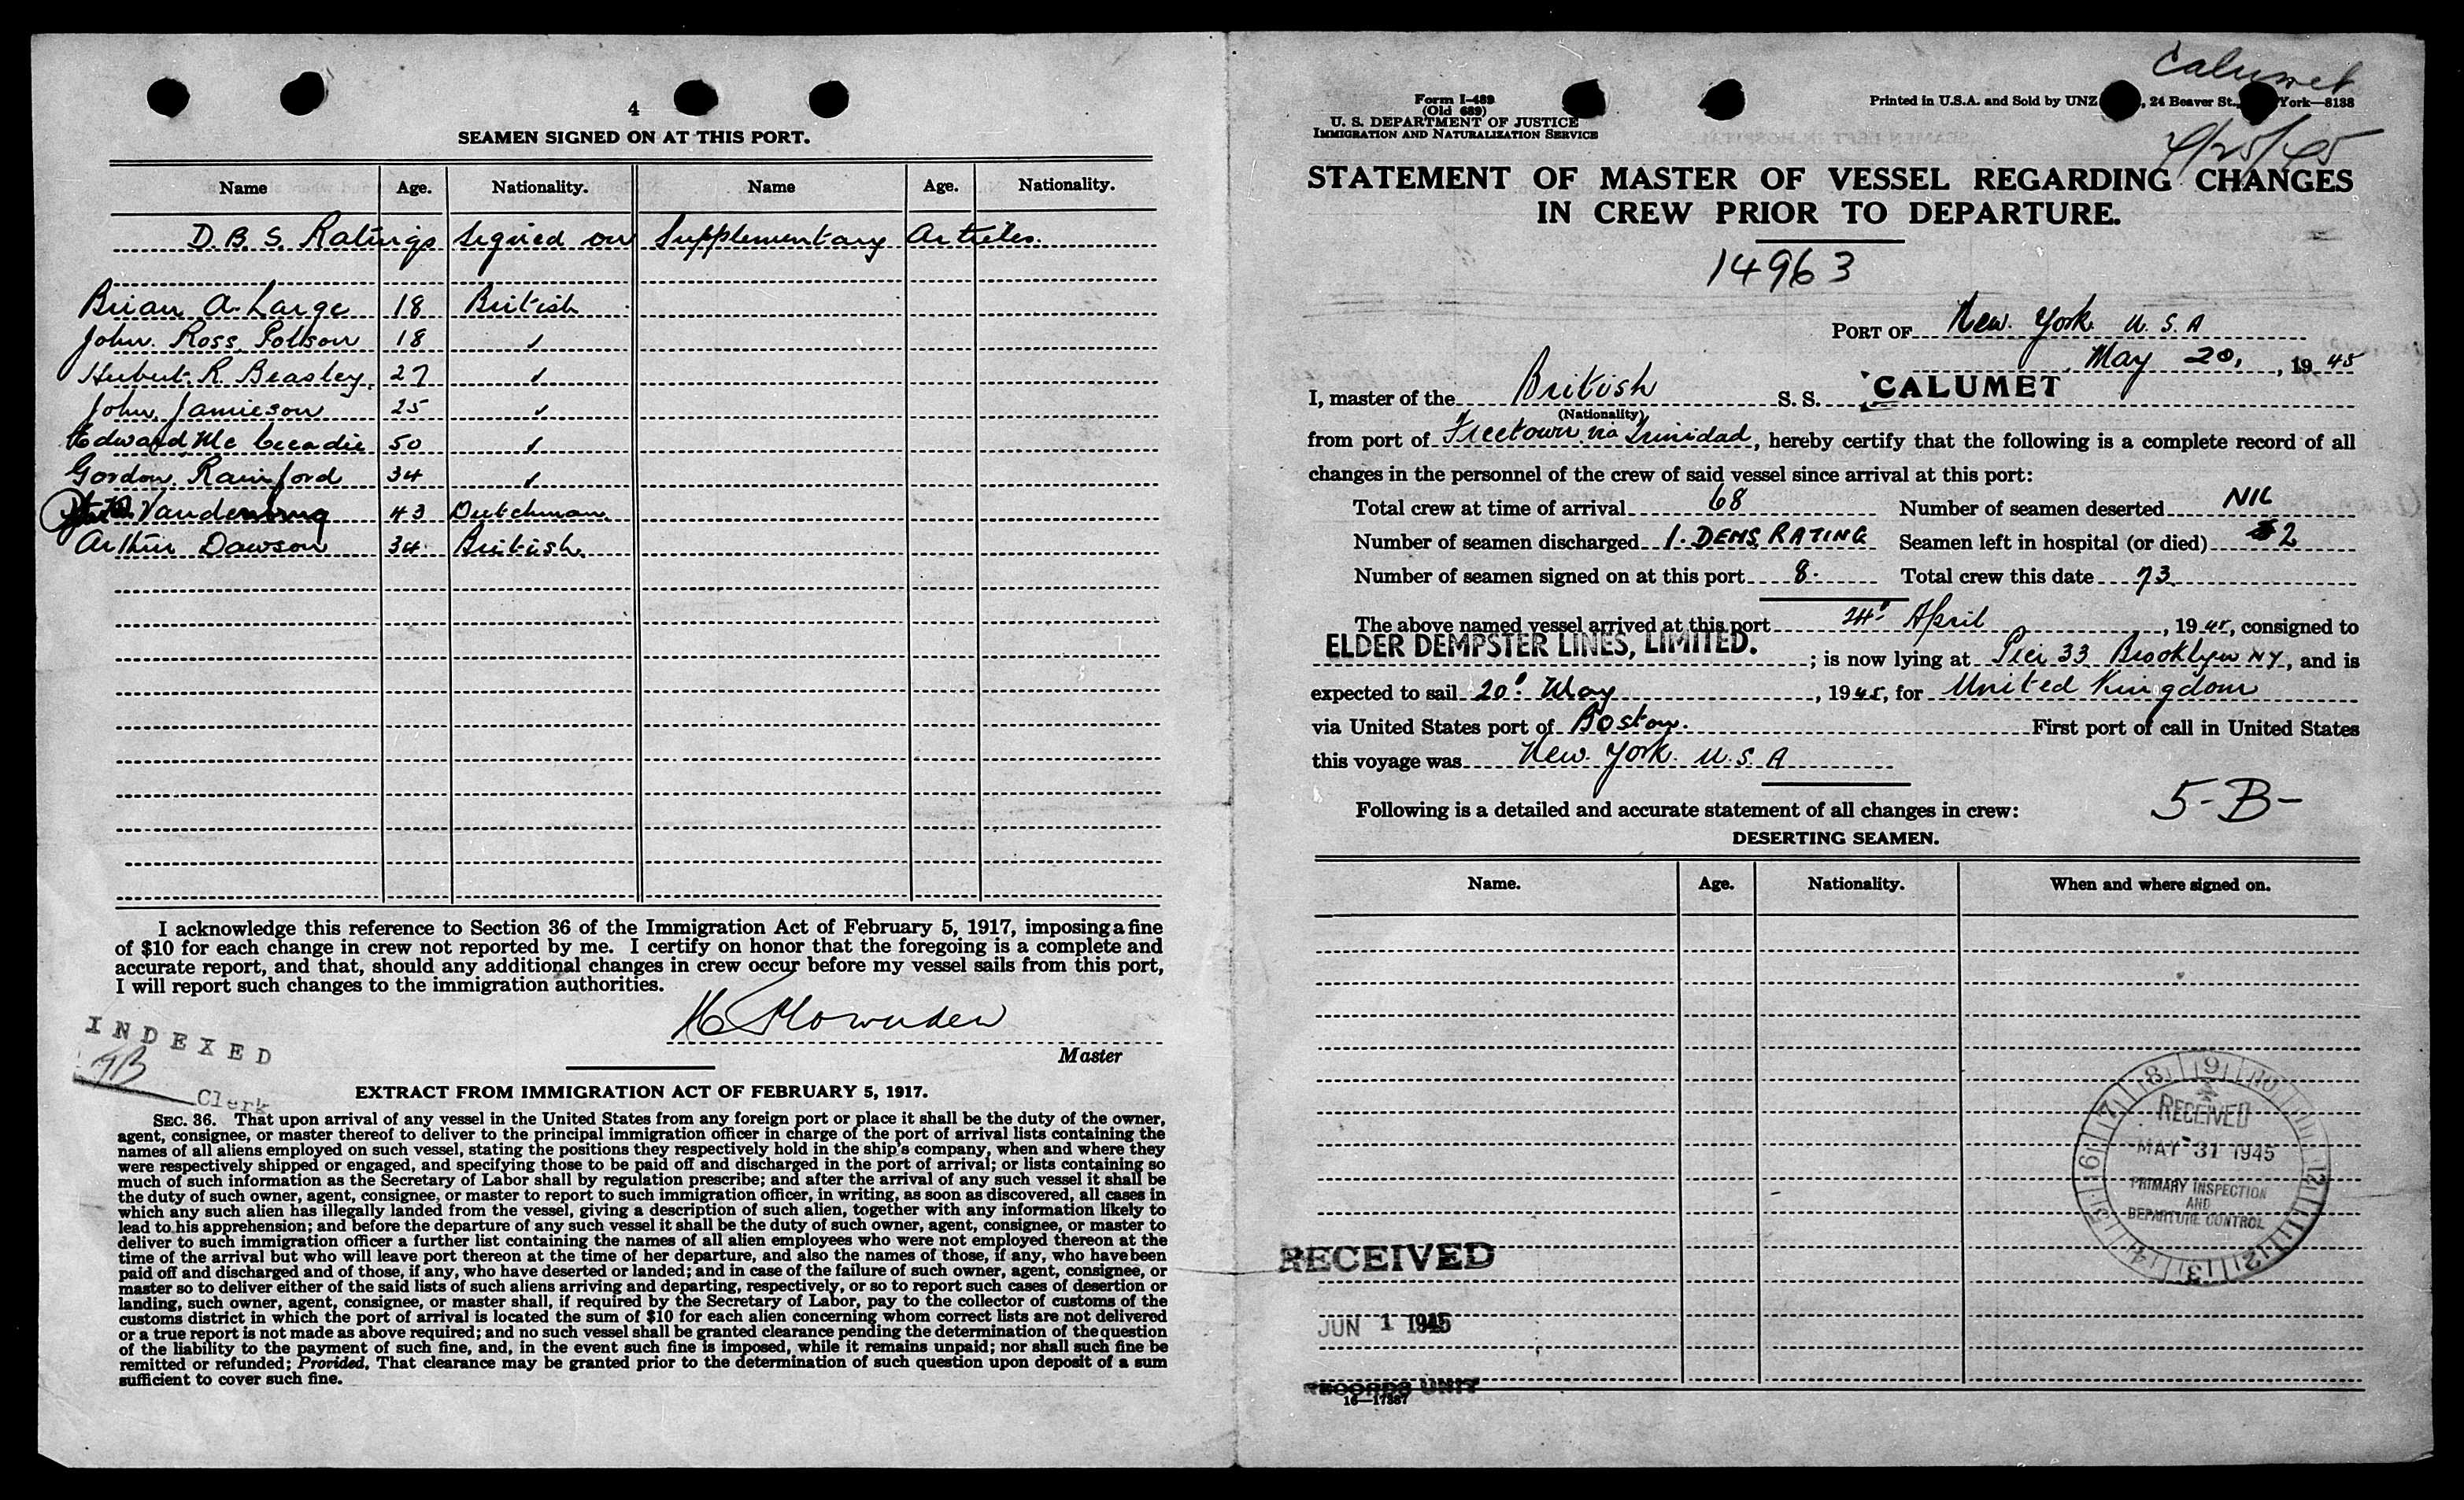 4
SEAMEN SIGNED ON AT THIS PORT.
Name Age. Nationality. Name Age. Nationality.
D.B.S. Ratings signed on Supplementary Articles.
Brian A. Large 18 British
John Ross Potson 18 ✓
Hubert R. Beasley. 27 ✓
John Jamieson 25 ✓
Edward Mc Creadie 50 ✓
Gordon Rainford 34 ✓
Vandenburg 43 Dutchman
Arthur Dawson 34 British.
I acknowledge this reference to Section 36 of the Immigration Act of February 5, 1917, imposing a fine
of $10 for each change in crew not reported by me. I certify on honor that the foregoing is a complete and
accurate report, and that, should any additional changes in crew occur before my vessel sails from this port,
I will report such changes to the immigration authorities.
INDEXED
Clerk
Master
EXTRACT FROM IMMIGRATION ACT OF FEBRUARY 5, 1917.
SEC. 36. That upon arrival of any vessel in the United States from any foreign port or place it shall be the duty of the owner,
agent, consignee, or master thereof to deliver to the principal immigration officer in charge of the port of arrival lists containing the
names of all aliens employed on such vessel, stating the positions they respectively hold in the ship's company, when and where they
were respectively shipped or engaged, and specifying those to be paid off and discharged in the port of arrival; or lists containing so
much of such information as the Secretary of Labor shall by regulation prescribe; and after the arrival of any such vessel it shall be
the duty of such owner, agent, consignee, or master to report to such immigration officer, in writing, as soon as discovered, all cases in
which any such alien has illegally landed from the vessel, giving a description of such alien, together with any information likely to
lead to his apprehension; and before the departure of any such vessel it shall be the duty of such owner, agent, consignee, or master to
deliver to such immigration officer a further list containing the names of all alien employees who were not employed thereon at the
time of the arrival but who will leave port thereon at the time of her departure, and also the names of those, if any, who have been
paid off and discharged and of those, if any, who have deserted or landed; and in case of the failure of such owner, agent, consignee, or
master so to deliver either of the said lists of such aliens arriving and departing, respectively, or so to report such cases of desertion or
landing, such owner, agent, consignee, or master shall, if required by the Secretary of Labor, pay to the collector of customs of the
customs district in which the port of arrival is located the sum of $10 for each alien concerning whom correct lists are not delivered
or a true report is not made as above required; and no such vessel shall be granted clearance pending the determination of the question
of the liability to the payment of such fine, and, in the event such fine is imposed, while it remains unpaid; nor shall such fine be
remitted or refunded; Provided, That clearance may be granted prior to the determination of such question upon deposit of a sum
sufficient to cover such fine.
Calumet
Form I-489
(Old 689)
U. S. DEPARTMENT OF JUSTICE
IMMIGRATION AND NATURALIZATION SERVICE
Printed in U.S.A. and Sold by UNZ , 24 Beaver St., York—8138
4/25/45
STATEMENT OF MASTER OF VESSEL REGARDING CHANGES
IN CREW PRIOR TO DEPARTURE.
14963
PORT OF New York U.S.A
May 20, , 1945
I, master of the British S. S. CALUMET
(Nationality)
from port of Freetown via Trinidad, hereby certify that the following is a complete record of all
changes in the personnel of the crew of said vessel since arrival at this port:
Total crew at time of arrival 68 Number of seamen deserted NIL
Number of seamen discharged 1. DEMS RATING Seamen left in hospital (or died) 2
Number of seamen signed on at this port 8. Total crew this date 73
The above named vessel arrived at this port 24. April , 1945, consigned to
ELDER DEMPSTER LINES, LIMITED. ; is now lying at Pier 33 Brooklyn NY, and is
expected to sail 20. May , 1945, for United Kingdom
via United States port of Boston. First port of call in United States
this voyage was New York U.S.A
Following is a detailed and accurate statement of all changes in crew:
5-B-
DESERTING SEAMEN.
Name. Age. Nationality. When and where signed on.
RECEIVED
MAY 31 1945
PRIMARY INSPECTION
AND
DEPARTURE CONTROL
RECEIVED
JUN 1 1945
RECORDS UNIT
16—17387